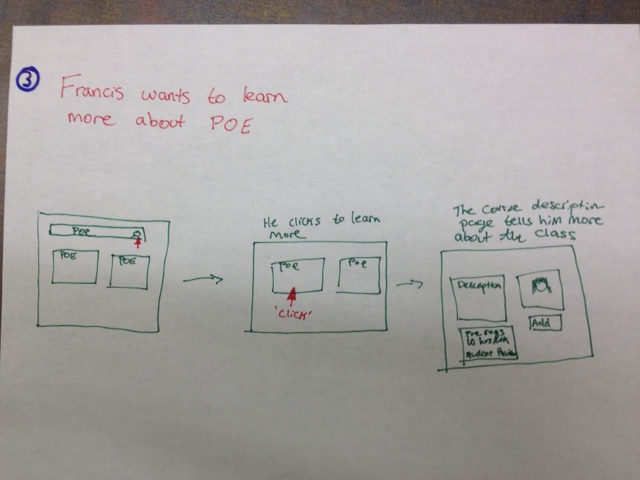 3
Francis wants to learn
more about POE
POE
POE
POE
He clicks to learn
more
POE
POE
'CLICK'
The course description
page tells him more
about the class
Description
Add
student